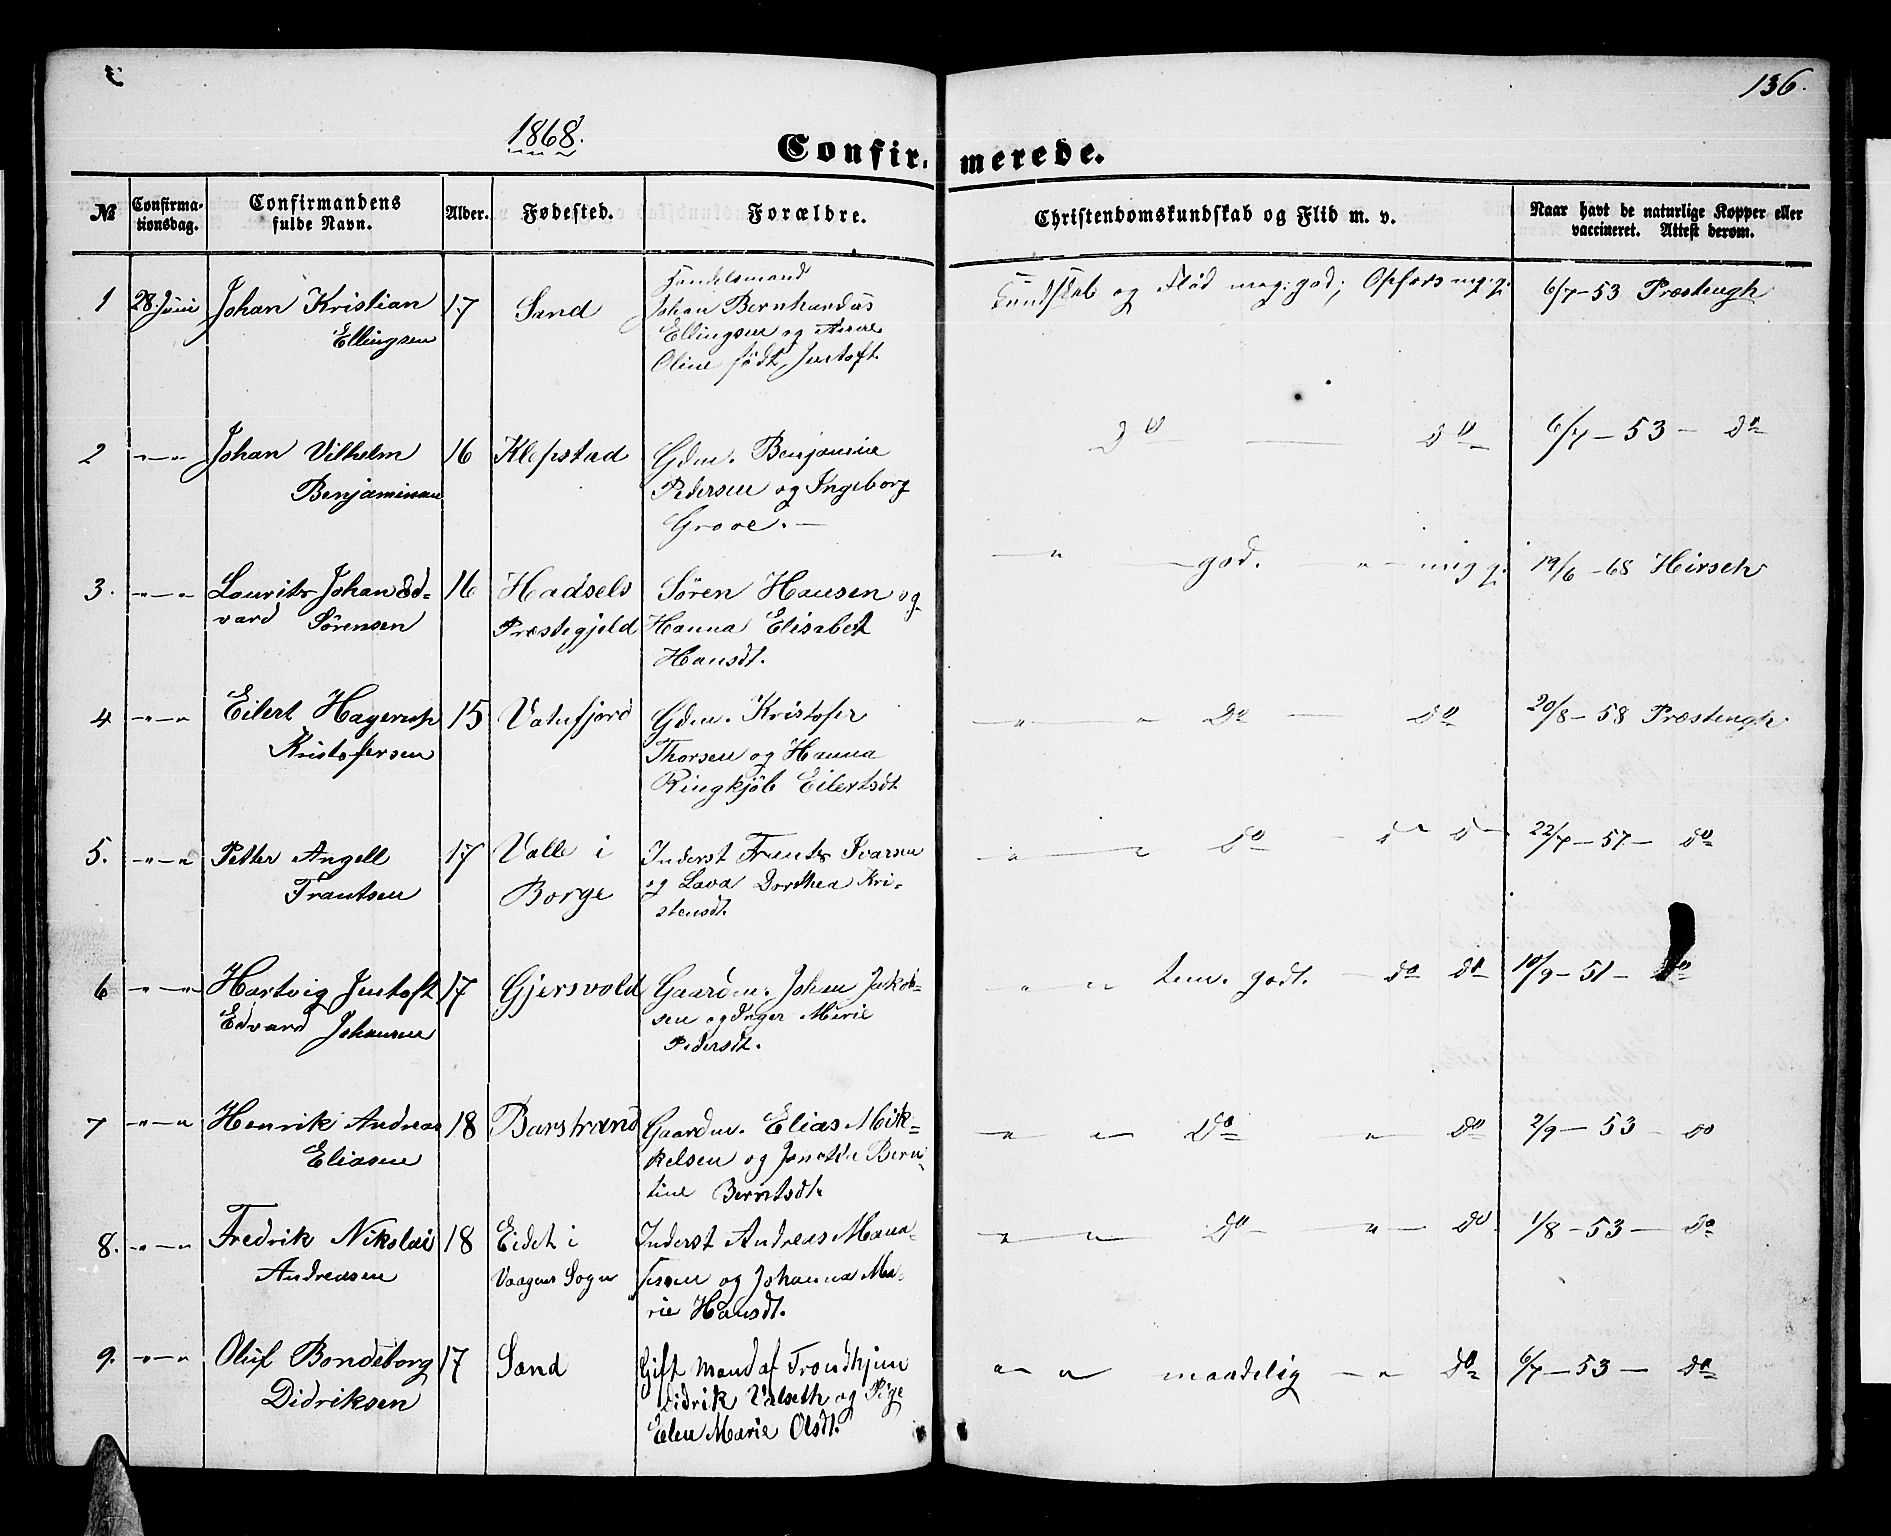 136.
1868.
Confir- merede.
№
Confirma-
tionsdag.
Confirmandens
fulde Navn.
Alder.
Fødested.
Forældre.
Christendomskundskab og Flid m. v.
Naar havt de naturlige Kopper eller
vaccineret. Attest derom.
1 28 Juni Johan Kristian 17 Sand Handelsmand Kundskab og Flid meg: god; Opførs mg. g. 6/7-53 Præstengh
Ellingsen Johan Bernhardus
Ellingsen og Anne
Oline født Jentoft.
2 -"-" Johan Vilhelm 16 Klepstad Gdm. Benjamin Do — do 6/7-53- do
Benjaminsen Pedersen og Ingeborg
Grove. —
3. -"-" Laurits Johan Ed- 16 Hadsels Søren Hansen og —"— -god. -"- mig g. 19/6-68 Hirsch
vard Sørensen Præstegjeld Hanna Elisabet
Hansdt.
4 -"-" Eilert Hagerup 15 Vatnfjord Gdm. Kristofer -"- " Do — Do 20/8-58 Præstengh
Kristofersen Thorsen og Hanna
Ringkjöb Eilertsdt
5. -"-" Petter Angell 17 Valle i Inderst Frants Ivarsen -"- — do - do do 22/7-57- do
Frantsen Borge og Lava Dorthea Kri-
stensdt.
6 -"-" Hartvig Jentoft 17 Gjersvold Gaardm. Johan Jakob- " " tem. godt. - do do 10/9-51- do
Edvard Johansen sen og Inger Marie
Pedersdt.
7 -"-" Henrik Andreas 18 Barstrand Gaardm. Elias Mik- -"- " Do -"- do 2/9-53- do
Eliasen kelsen og Jonetta Bern-
tine Berntsdt.
8. -"-" Fredrik Nikolai 18 Eidet i Inderst Andreas Mana- -"- " do -"- do 1/8-53- do
Andreasen Vaagens Sogn ssen og Johanna Ma-
rie Hansdt.
9. -"-" Oluf Bondeborg 17 Sand Gift Mand af Trondhjem " " maadelig -"- do 6/7-53- do
Didriksen Didrik Valseth og Pige
Elen Marie Olsdt.